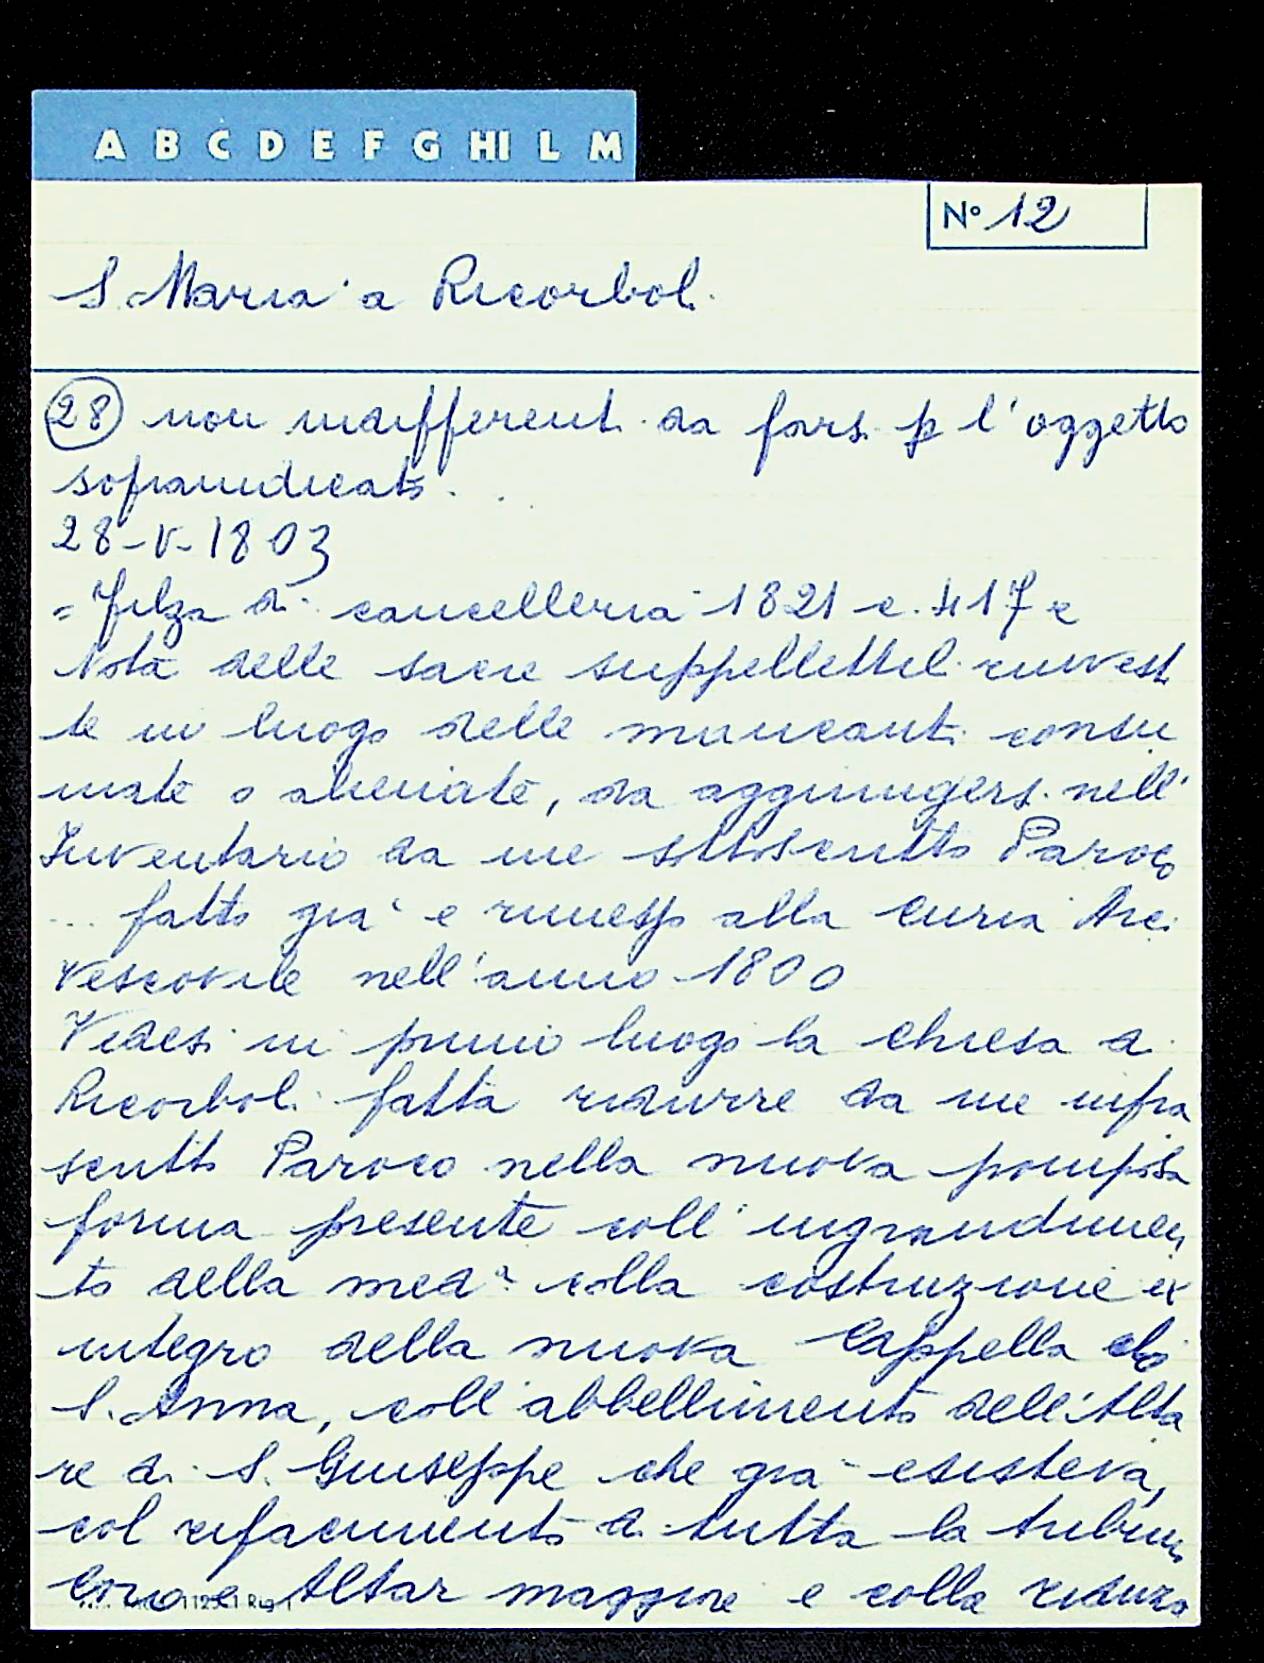 A B C D E F G HI L M
N° 12
S. Maria a Ricorboli
28 non indifferenti da farsi p l'oggetto
sopraindicato.
28-V-1803
= Filza di cancelleria 1821 c. 417 =
Nota delle sacre suppellettili rinvesti
te in luogo delle mancanti consu
mate o alienate, da aggiungersi nell'
Inventario da me sottoscritto Paroco
... fatto già e rimesso alla Curia Arci
vescovile nell'anno 1800
Vedesi in primo luogo la chiesa di
Ricorboli fatta ridurre da me infra
scritto Paroco nella nuova pomposa
forma presente coll'ingrandimen
to della meda colla costruzione ex
integro della nuova Cappella di
S. Anna, coll'abbellimento dell'Alta
re di S. Giuseppe che già esisteva,
col rifacimento di tutta la tribuna
Coro e Altar maggiore e colla riduzio